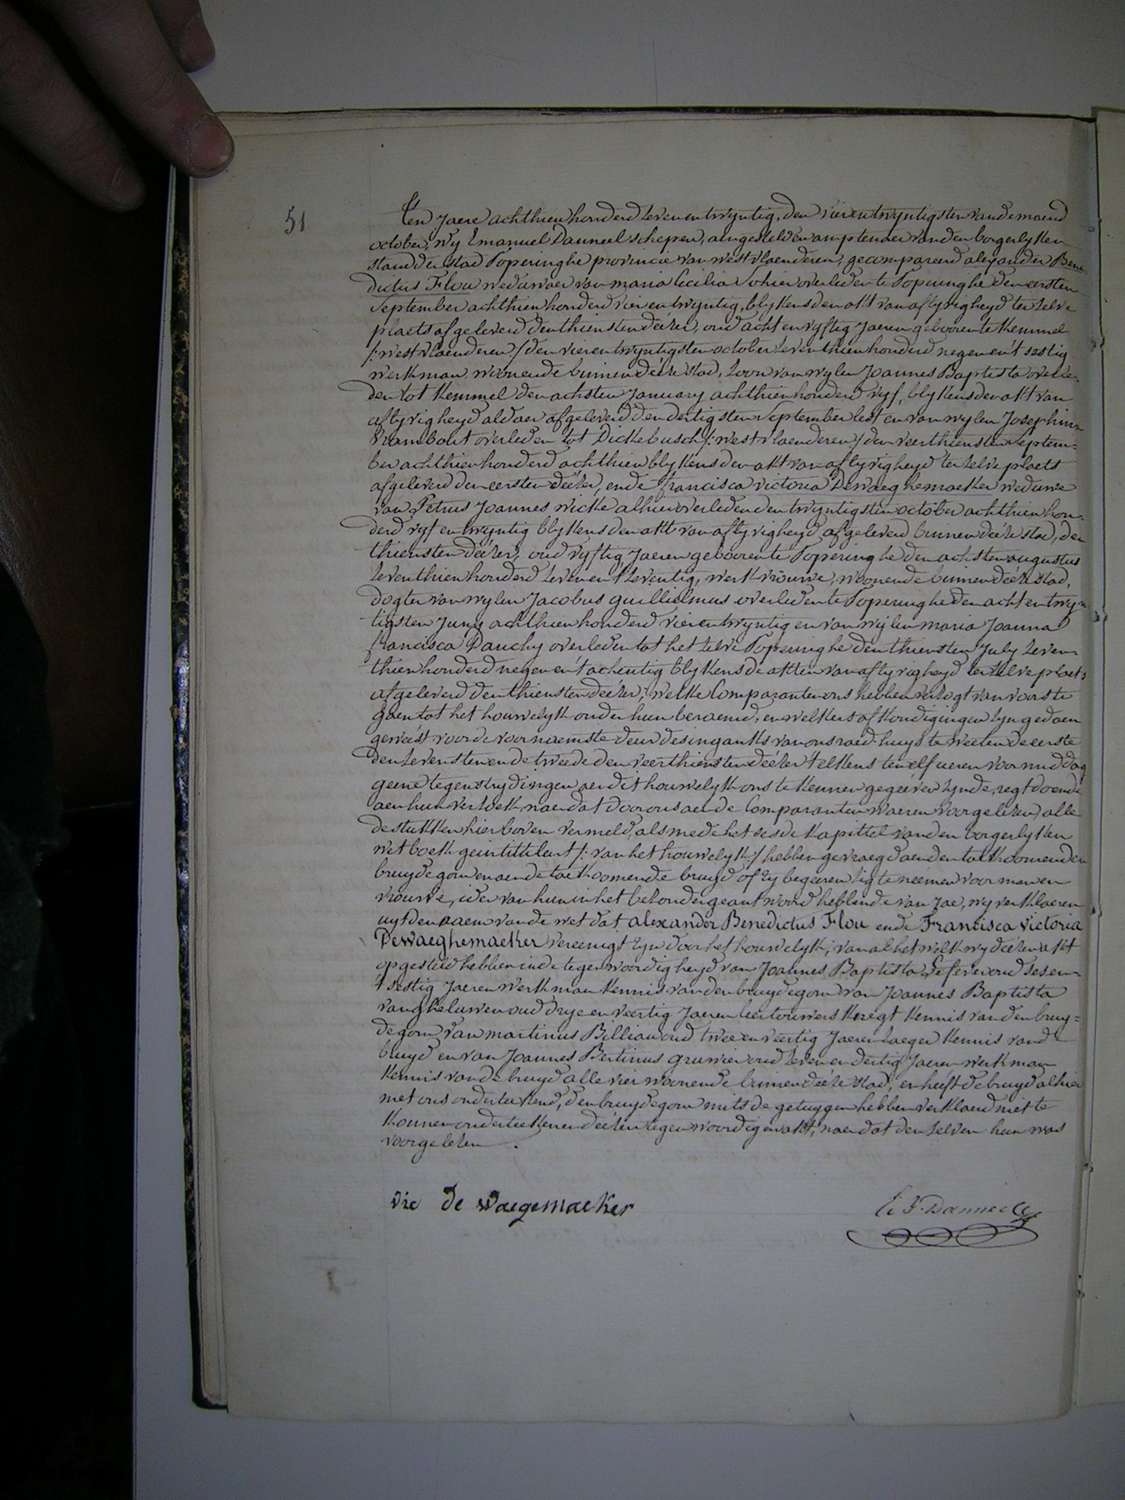 51
Ten jaere achthien honderd seven en twyntig, den vieren twyntigsten van de maend
october, wy Emanuel Danneel schepen, aengestelden amptenaer van den borgerlyken
stand der stad Poperinghe provincie van westvlaenderen, gecompareerd alexander Bene
dictus Flou wedûwaer van maria Cecilia Sohier overleden te Poperinghe den eersten
September achthien honderd vier en twyntig, blykens den akt van aflyvigheyd ter selve
plaets afgeleverd den thiensten deézer, oud acht en vyftig Jaeren gebooren te Kemmel
/: westvlaenderen / den vier en twyntigsten october seventhien honderd negen en t sestig
werkman woonende binnen deéze stad, zoon van wylen Joannes Baptista overle
den tot Kemmel den achsten January achthien honderd vyf, blykens den akt van
aflyvigheyd aldaer afgeleverd den dertigsten september lest en van wylen Josephina
overleden tot Dickebusch /: westvlaenderen / den veerthiensten septem-
ber achthien honderd achthien blykens den akt van aflyvigheyd ter zelve plaets
afgeleverd den eersten deézer, ende francisca victoria Dewaeghemaeker weduwe
van Petrus Joannes Wicke alhier overleden den twyntigsten october achthien hon-
derd vyf en twyntig blykens den akt van aflyvigheyd afgeleverd binnen deéze stad, den
thiensten deézer, oud vyftig Jaeren gebooren te Poperinghe den achsten augustus
seventhien honderd seven en t seventig, werkvrouwe, woonende binnen deéze stad,
dogter van wylen Jacobus guillielmus overleden te Poperinghe den acht en twyn
tigsten Juny achthien honderd vier en twyntig en van wylen maria Joanna
francisca Dauchy overleden tot het zelve Poperinghe den thiensten July zeven
thien honderd negen en t achentig blykens de akten van aflyvigheyd ter zelve plaets
afgeleverd den thiensten deézer, welke Comparanten ons hebben verzogt van voorts te
gaen tot het houwelyk onder hun beraemd, en welkers afkondigingen zyn gedaen
geweest voor de voornaemste deur des ingankx van ons raedhuys te weeten de eerste
den sevensten en de tweede den veerthiensten deézer telkens ten elf ueren voormiddag
geene tegenstrydingen aen dit houwelyk ons te kennen gegeeven zynde, regt doende
aen hun verzoek, naer dat door ons aen de Comparanten waeren voorgelezen alle
de stukken hier boven vermeld, als mede het sesde kapittel van den borgerlyken
wetboek geintituleert /: van het houwelyk :/ hebben gevraegd aen den toekoomenden
bruydegom en aen de toekoomende bruyd of zy begeeren zig te neemen voor man en
vrouwe, ider van hun in het bezonder geantwoord hebbende van Jae, wy verklaeren
uyt den naem van de wet dat alexander Benedictus Flou ende Francisca Victoria
DeWaeghemaeker vereenigt zyn door het houwelyk, van al het welk wy deézen akt
opgesteld hebben in de tegenwoordigheyd van Joannes Baptista Lefever oud ses en
t sestig Jaeren werkman kennis van den bruydegom van Joannes Baptista
vangheluwen oud drye en veertig Jaeren leertouwers knegt kennis van den bruy-
degom van martinus Billiau oud twee en veertig Jaeren zaeger kennis van de
bruyd en van Joannes Bertinus gruwier oud seven en dertig Jaeren werkman
kennis van de bruyd alle vier woonende binnen deéze stad, en heeft de bruyd alhier
met ons onderteekend, den bruydegom mits de getuygen hebben verklaerd niet te
konnen onderteekenen deézen tegenwoordigen akt, naer dat den zelven hun was
voorgelezen.
vic de waegemaeker
E F Danneel